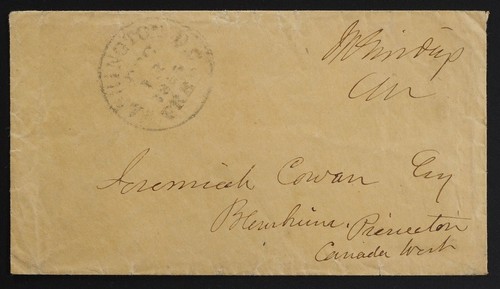 WASHINGTON D.C.
FREE
Jeremiah Cowan Esq
Blenheim, Princeton
Canada West